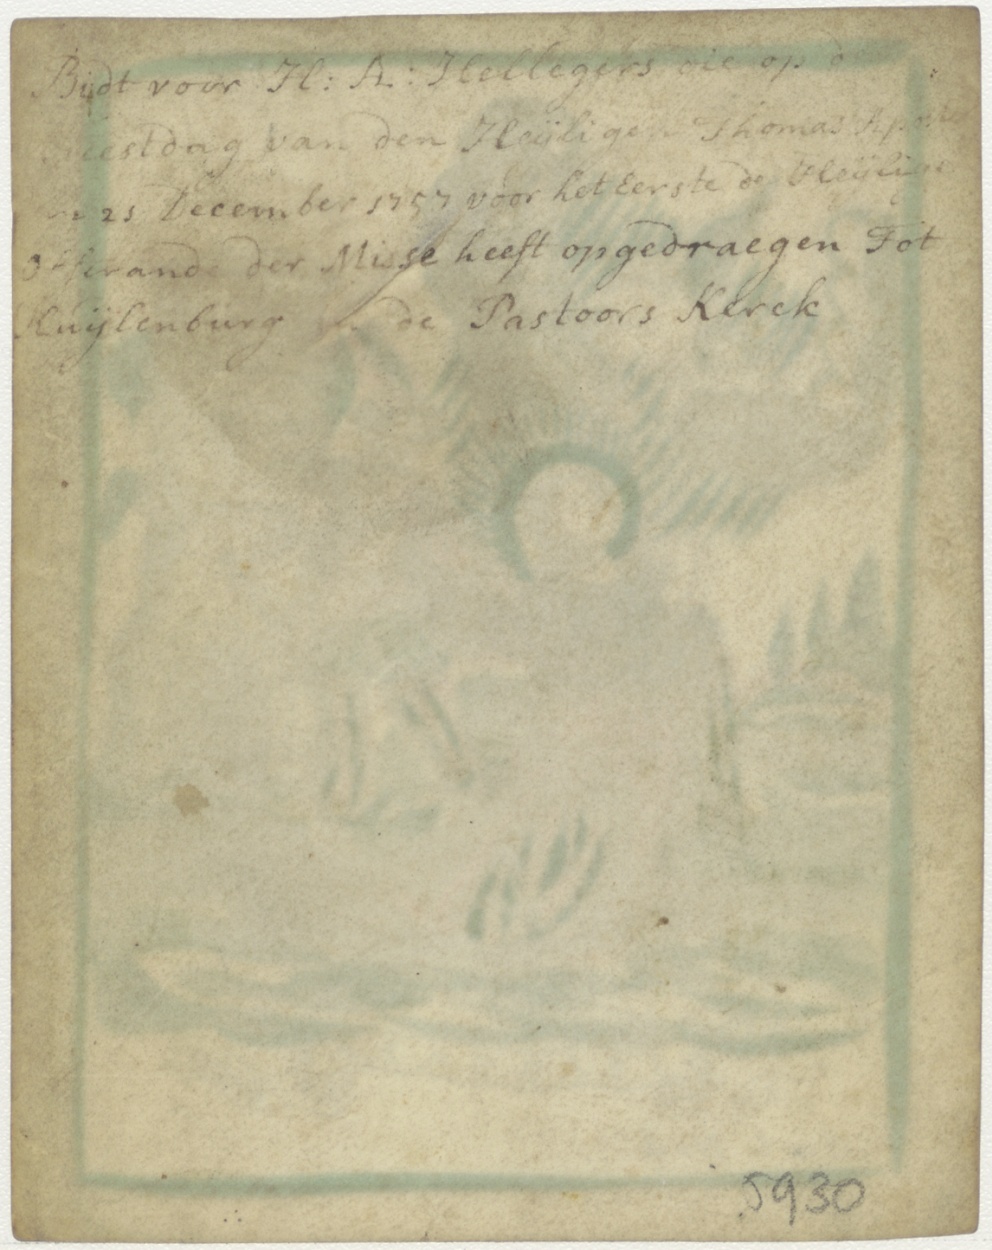 Bidt voor H: A: Hellegers die op d
feestdag van den Heÿligen Thomas Apostel
21 December 1757 voor het Eerste de Heÿlige
Offerande der Misse heeft opgedraegen Tot
Kuÿlenburg in de Pastoors Kerck
5930